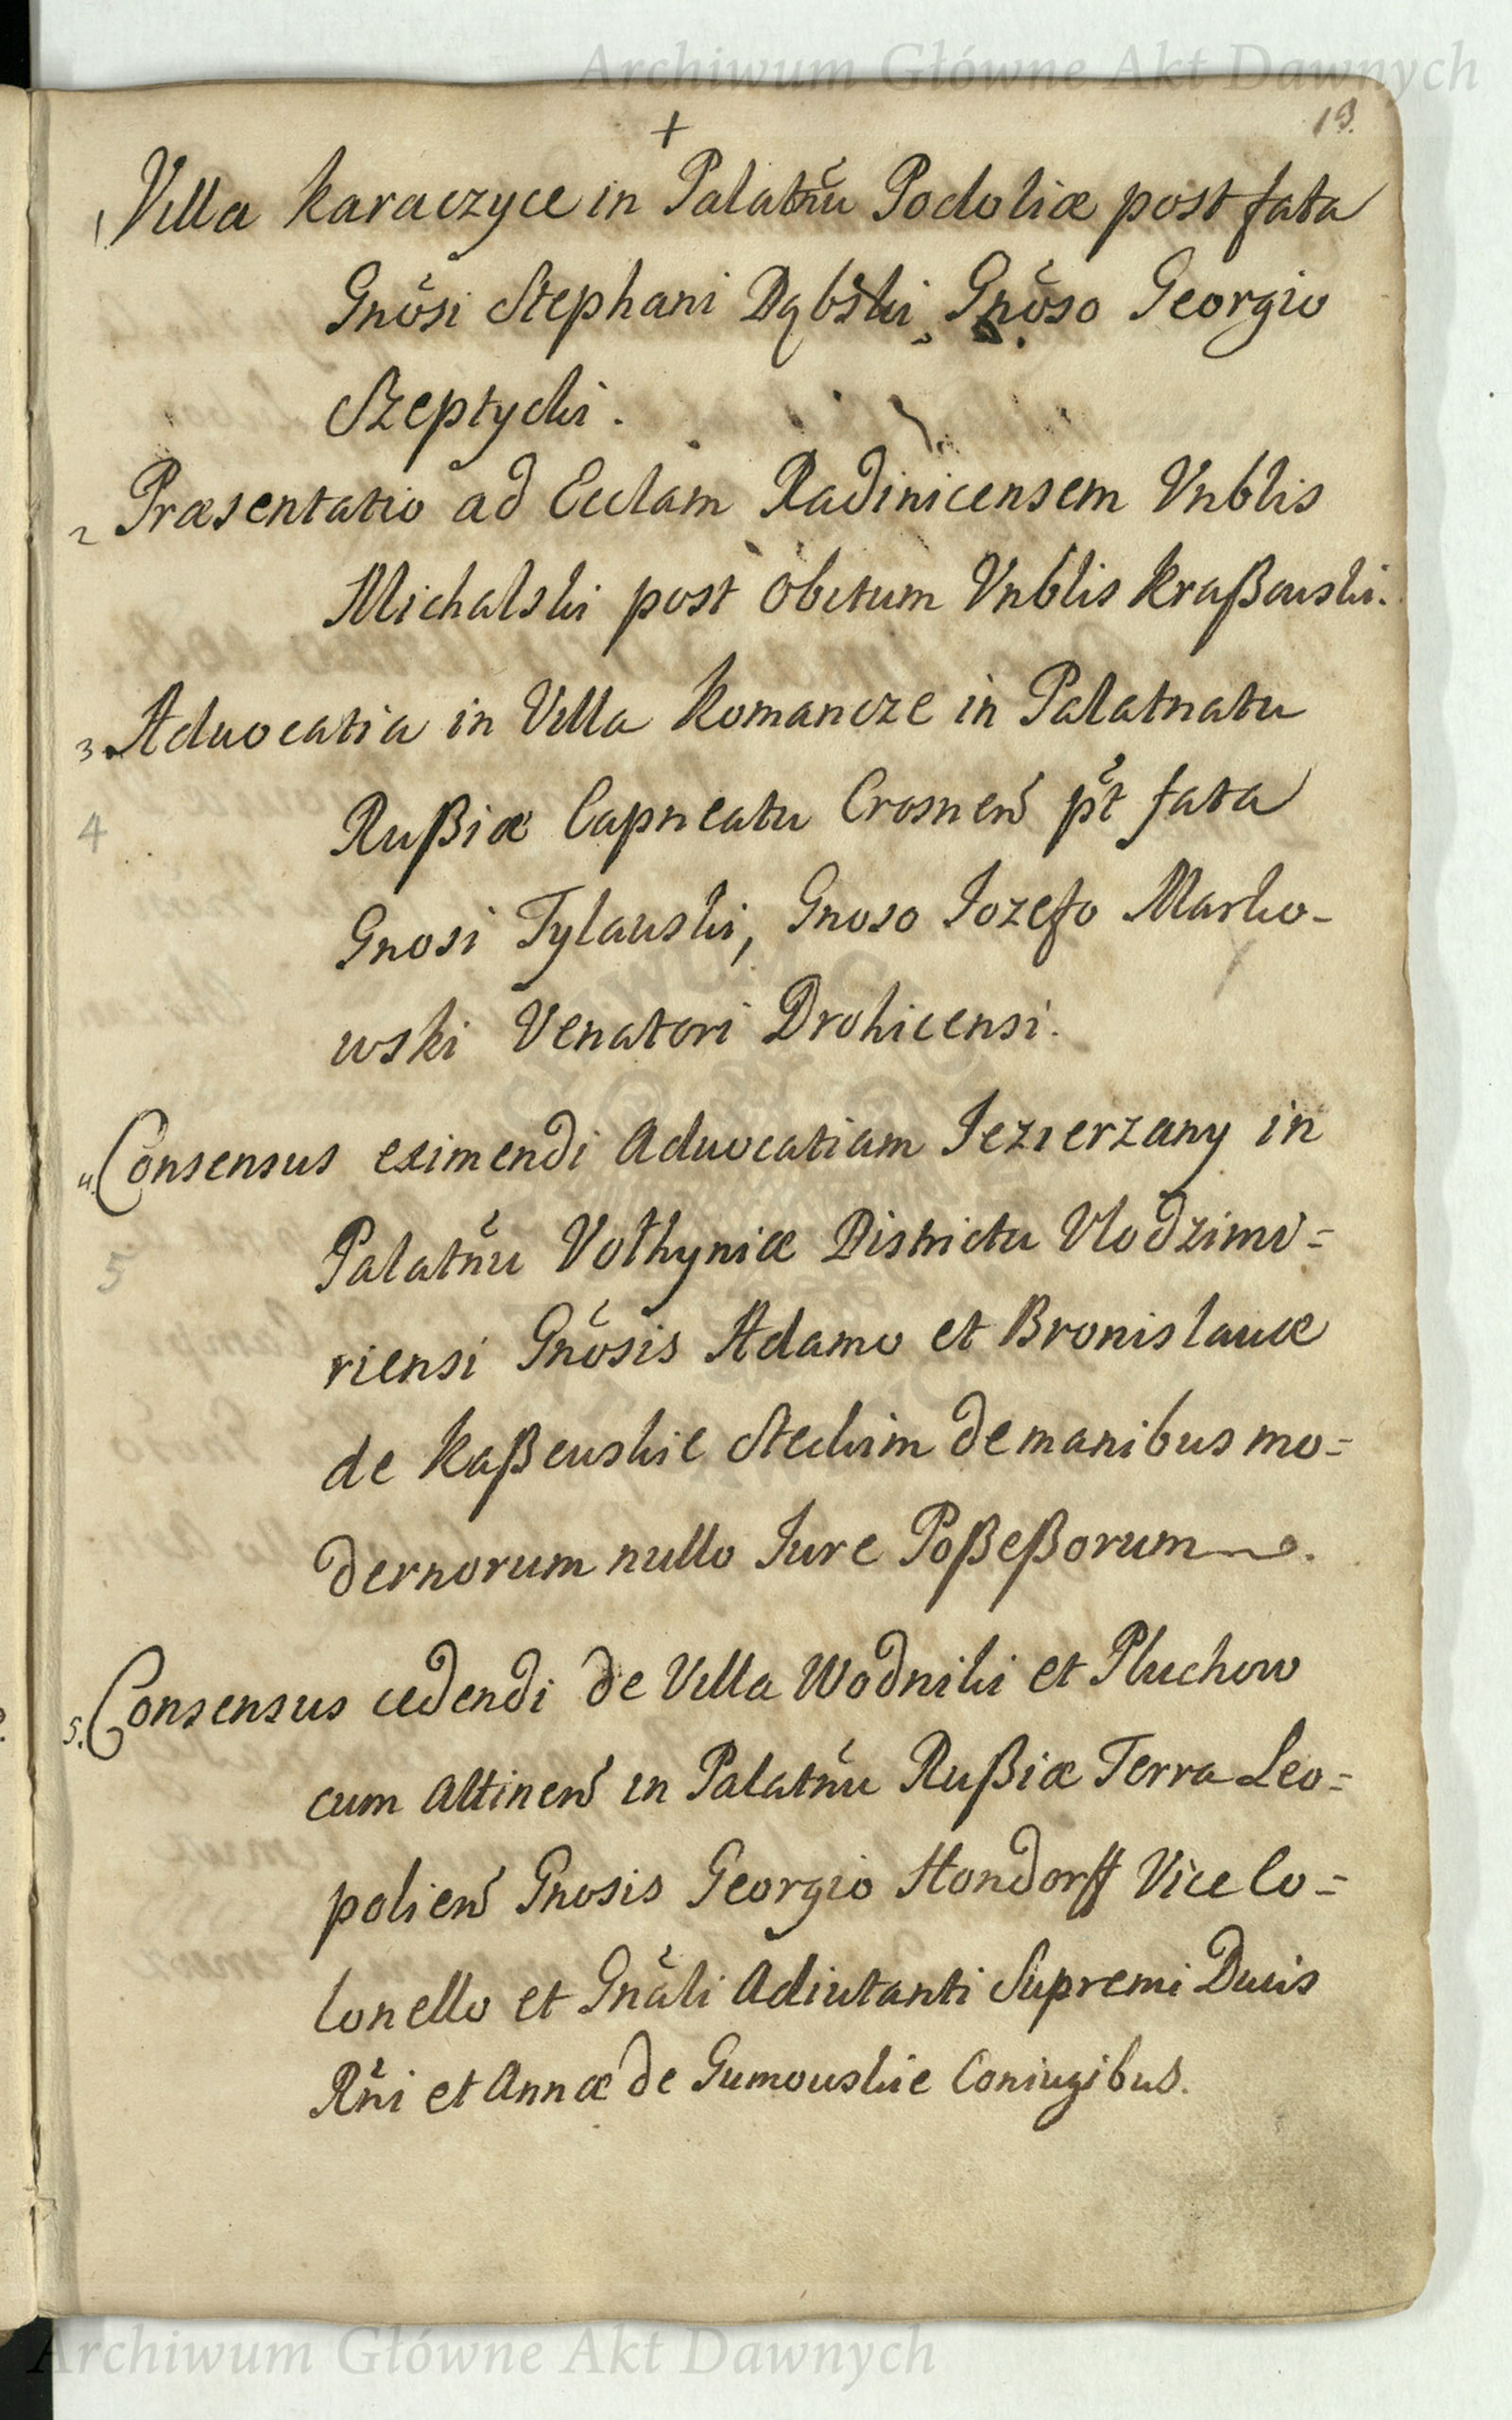 Archiwum Główne Akt Dawnych
19.
+
1. Villa Karaczyce in Palatnu Podoliæ post fata
Gnosi Stephani Dąbski, Gnoso Georgio
Szeptycki.
2 Præsentatio ad Ecclam Radinicensem Vnblis
Michalski post obitum Vnblis Kraßauski.
3. Aduocatia in Villa Komancze in Palatnatu
4
Rußiæ Capneatu Crosnen pt fata
Gnosi Tylauski, Gnoso Iozefo Marko-
wski Venatori Drohicensi.
4. Consensus eximendi Aduocatiam Iezierzany in
5
Palatnu Vołhyniæ Districtu Vlodzimi=
riensi Gnosis Adamo et Bronislauæ
de Kaßeuskie Steckim de manibus mo=
dernorum nullo Iure Poßeßorum.
5. Consensus cedendi de Villa Wodniki et Pluchow
cum Attinen in Palatnu Rußiæ Terra Leo=
polien Gnosis Georgio Hondorff Vice Co=
lonello et Gnali Adiutanti Supremi Ducis
Rni et Annæ de Gumouskie Coniugibus.
Archiwum Główne Akt Dawnych